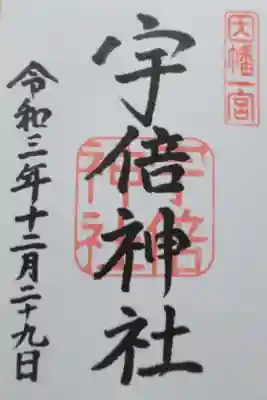 因幡一宮
宇倍神社
宇倍神社
令和三年十二月二十九日